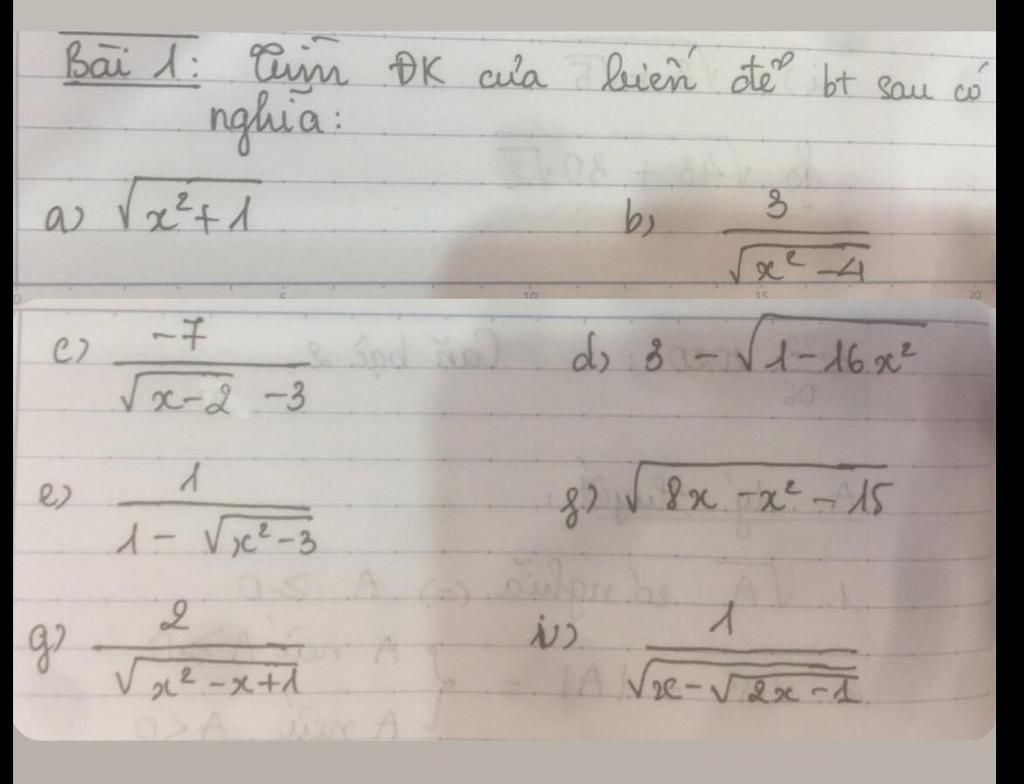 Bài 1: Tìm ĐK của biến để bt sau có
nghĩa:
a) √(x²+1) b) 3/√(x²-4)
c) -7/(√(x-2) -3) d) 3 - √(1-16x²)
e) 1/(1-√(x²-3)) f) √(8x -x² -15)
g) 2/√(x²-x+1) h) 1/√(x-√(2x-1))